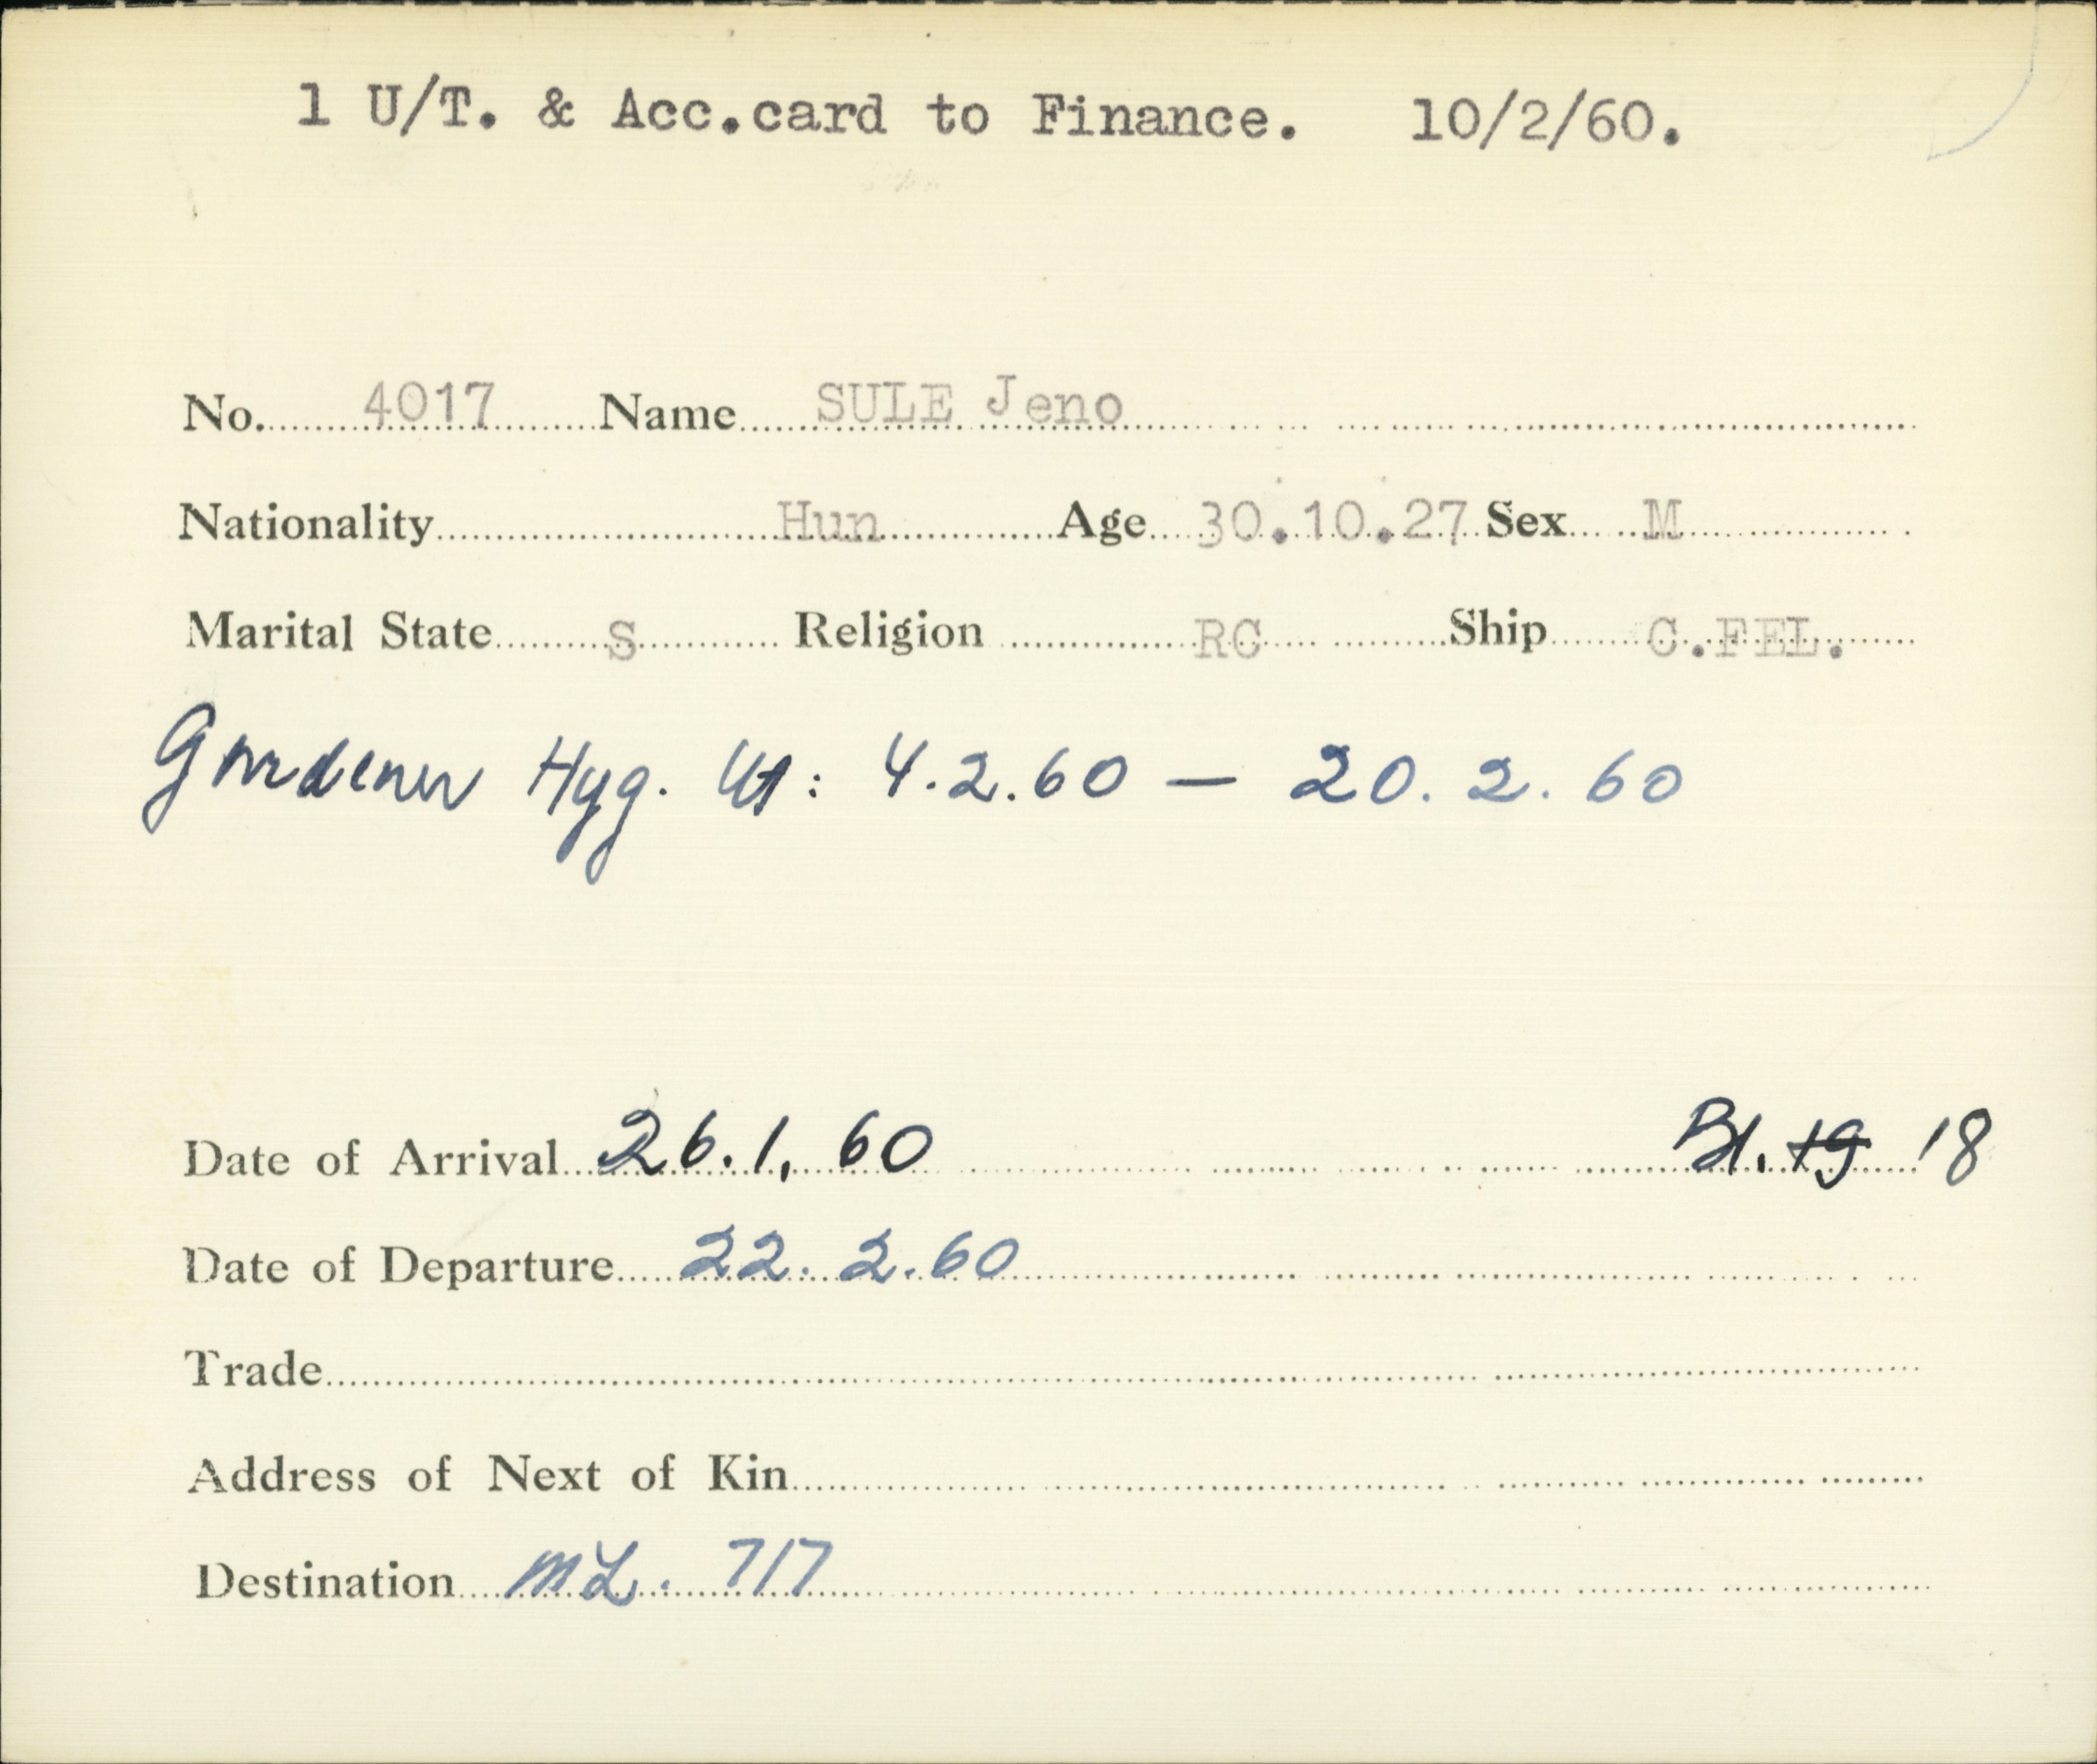 1 U/T. & Acc.card to Finance. 10/2/60.
No. 4017 Name SULE Jeno
Nationality Hun Age 30.10.27 Sex M
Marital State S Religion RC Ship C.FEL.
Gardener Hyg. : 4.2.60 — 20. 2. 60
Date of Arrival 26.1. 60 Bl. 19 18
Date of Departure 22. 2.60
Trade
Address of Next of Kin
Destination ML. 717